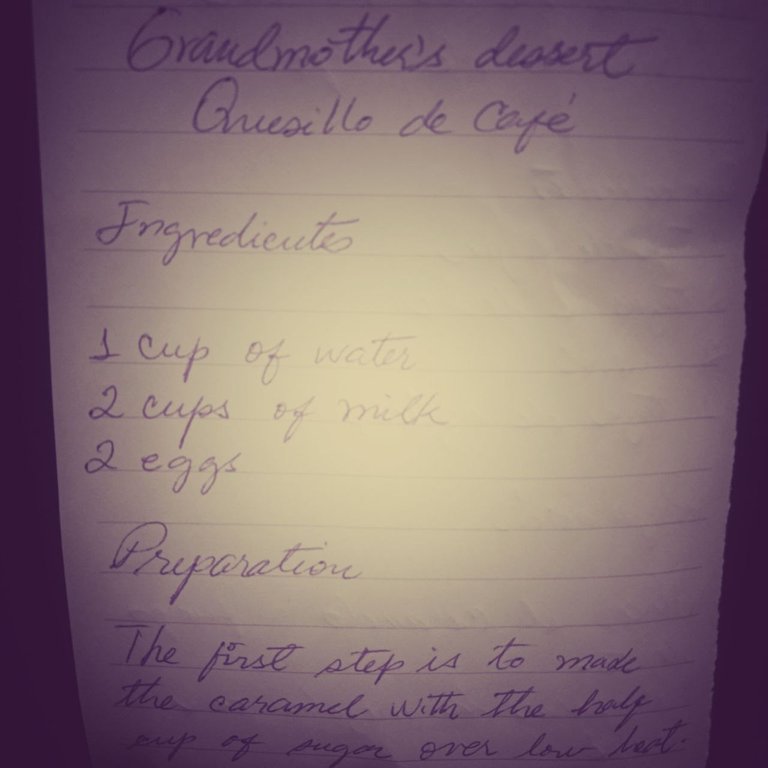 Grandmother's dessert
Quesillo de Café
Ingredientes
1 cup of water
2 cups of milk
2 eggs
Preparation
The first step is to made
the caramel with the half
cup of sugar over low heat.